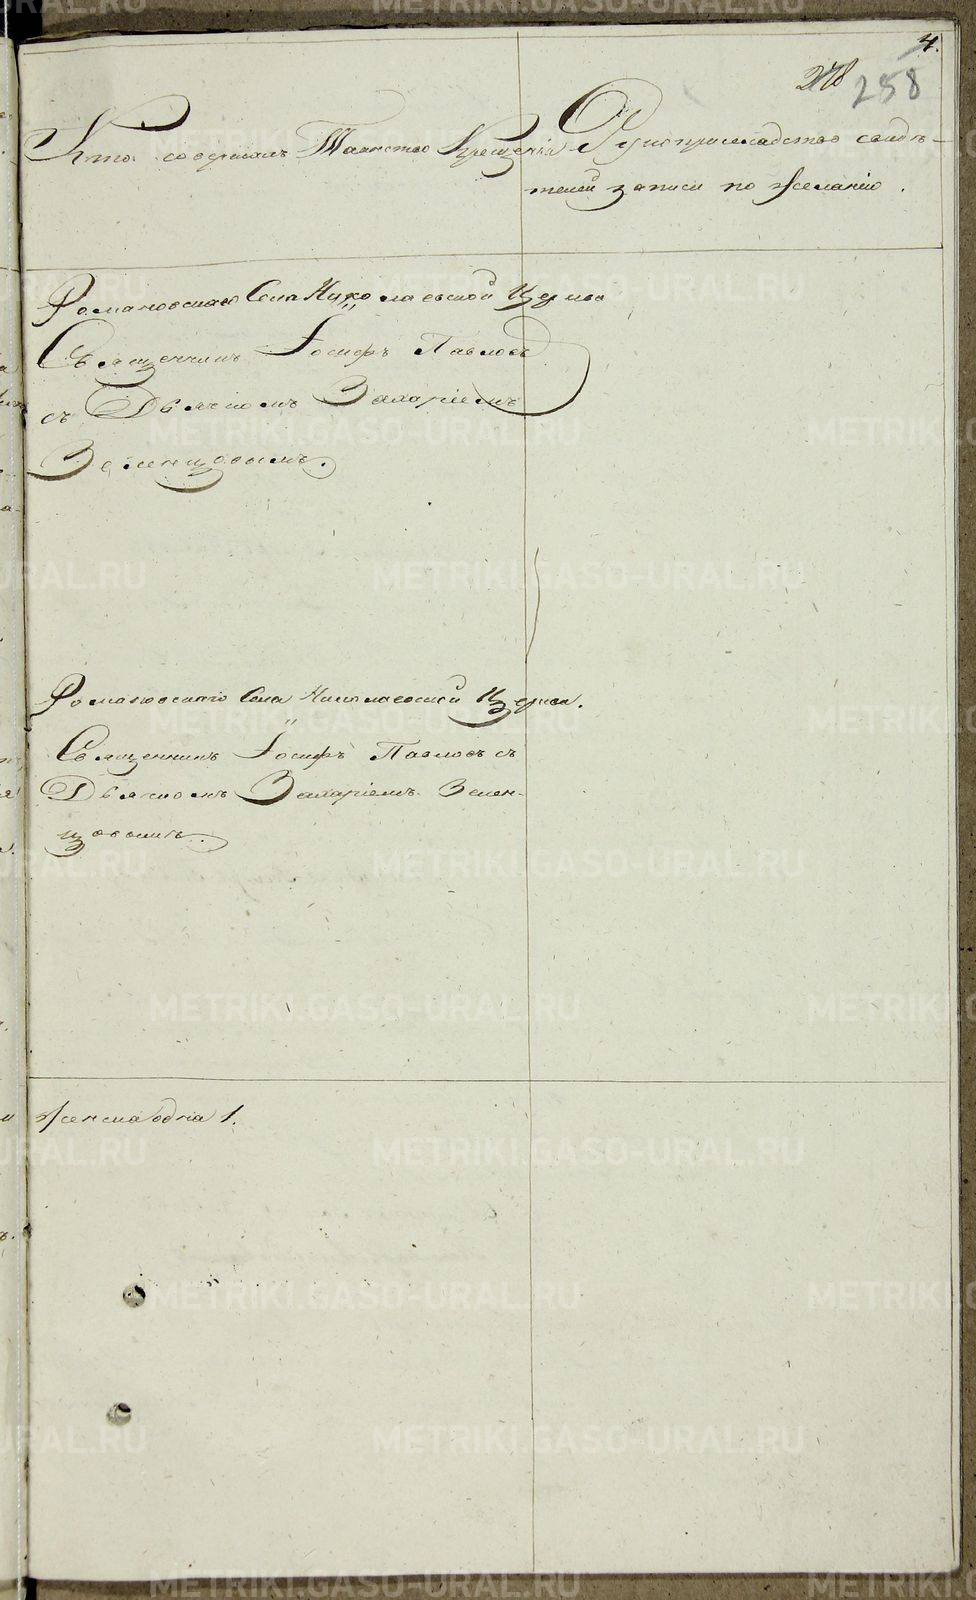 4.
278 258
Кто совершалъ Таинство Крещенія
Рукоприкладство свидѣ-
телей записи по желанію.
Романовскаго Села Николаевской Церкви
Священникъ Іосифъ Павловъ
съ Дьячкомъ Захаріемъ
Зеленцовымъ.
Романовскаго Села Николаевской Церкви.
Священникъ Іосифъ Павловъ съ
Дьячкомъ Захаріемъ Зелен-
цовымъ.
Женска одна 1.
METRIKI.GASO-URAL.RU